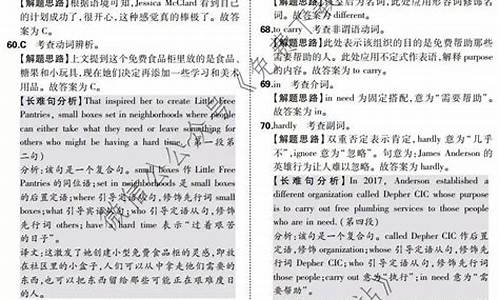 【解题思路】根据语境可知,Jessica McClard 看到自己
的计划成功了,很开心,这种感觉真的棒极了。故答
案为 C。
60.C 考查动词辨析。
【解题思路】上文提到这个免费食品柜里放的是食品、
糖果和小玩具,现在她们决定再添加一些学习和美术
用品。故答案为 C。
【长难句分析】That inspired her to create Little Free
Pantries, small boxes set in neighborhoods where people
can either take what they need or leave something for
others who might be having a hard time. (第一段第
二句)
分析:该句是一个复合句。small boxes 作 Little Free
Pantries 的同位语; set in neighborhoods 是 small boxes
的后置定语;where 引导定语从句,修饰先行词 small
boxes;what 引导宾语从句;who 引导定语从句,修饰先
行词 others; have a hard time 表示“过着艰苦
的日子”。
译文:这激发了她创建小型免费食品柜的灵感,即放
在社区里的小盒子,人们可以从中拿走他们需要的
东西,也可以把东西留给那些可能正在艰难度日
的人。
为名词,此处应用形容词修饰名
词。故答案为 different。
68.to carry 考查非谓语动词。
【解题思路】此处表示该组织的目的是免费帮助那些
需要帮助的人。此处应用不定式作表语,解释 purpose
的内容。故答案为 to carry。
69.in 考查介词。
【解题思路】in need 为固定搭配,意为“需要帮助”。
故答案为 in。
70.hardly 考查副词。
【解题思路】双重否定表示肯定,hardly 意为“几乎
不”,ignore 意为“忽略”。句意为:James Anderson 的
英雄行为让人难以忽略。故答案为 hardly。
【长难句分析】In 2017, Anderson established a
different organization called Depher CIC whose purpose
is to carry out free plumbing services to those people
who are in need. (第四段)
分析:该句是一个复合句。called Depher CIC 作后置
定语,修饰 organization;whose 引导定语从句,修饰先行
词 Depher CIC; who 引导定语从句,修饰先行词
those people;carry out 意为“执行”;in need 意为“需
要帮助”。